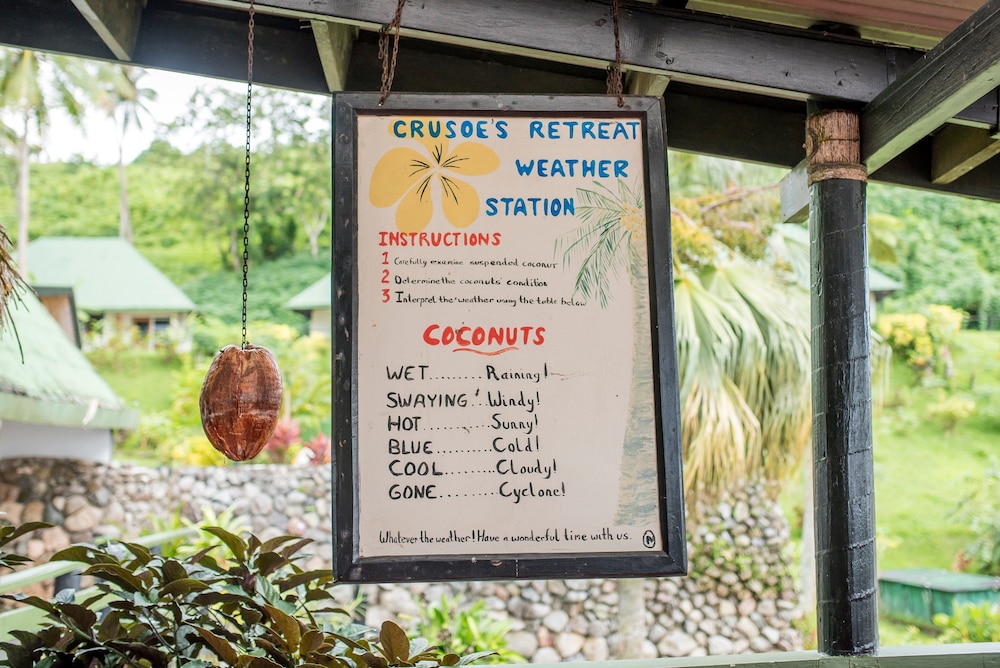 CRUSOE'S RETREAT
WEATHER
STATION
INSTRUCTIONS
1 Carefully examine suspended coconut
2 Determine the coconuts' condition
3 Interpret the weather using the table below
COCONUTS
WET......... Raining!
SWAYING!.. Windy!
HOT............ Sunny!
BLUE.......... Cold!
COOL......... Cloudy!
GONE......... Cyclone!
Whatever the weather! Have a wonderful time with us.